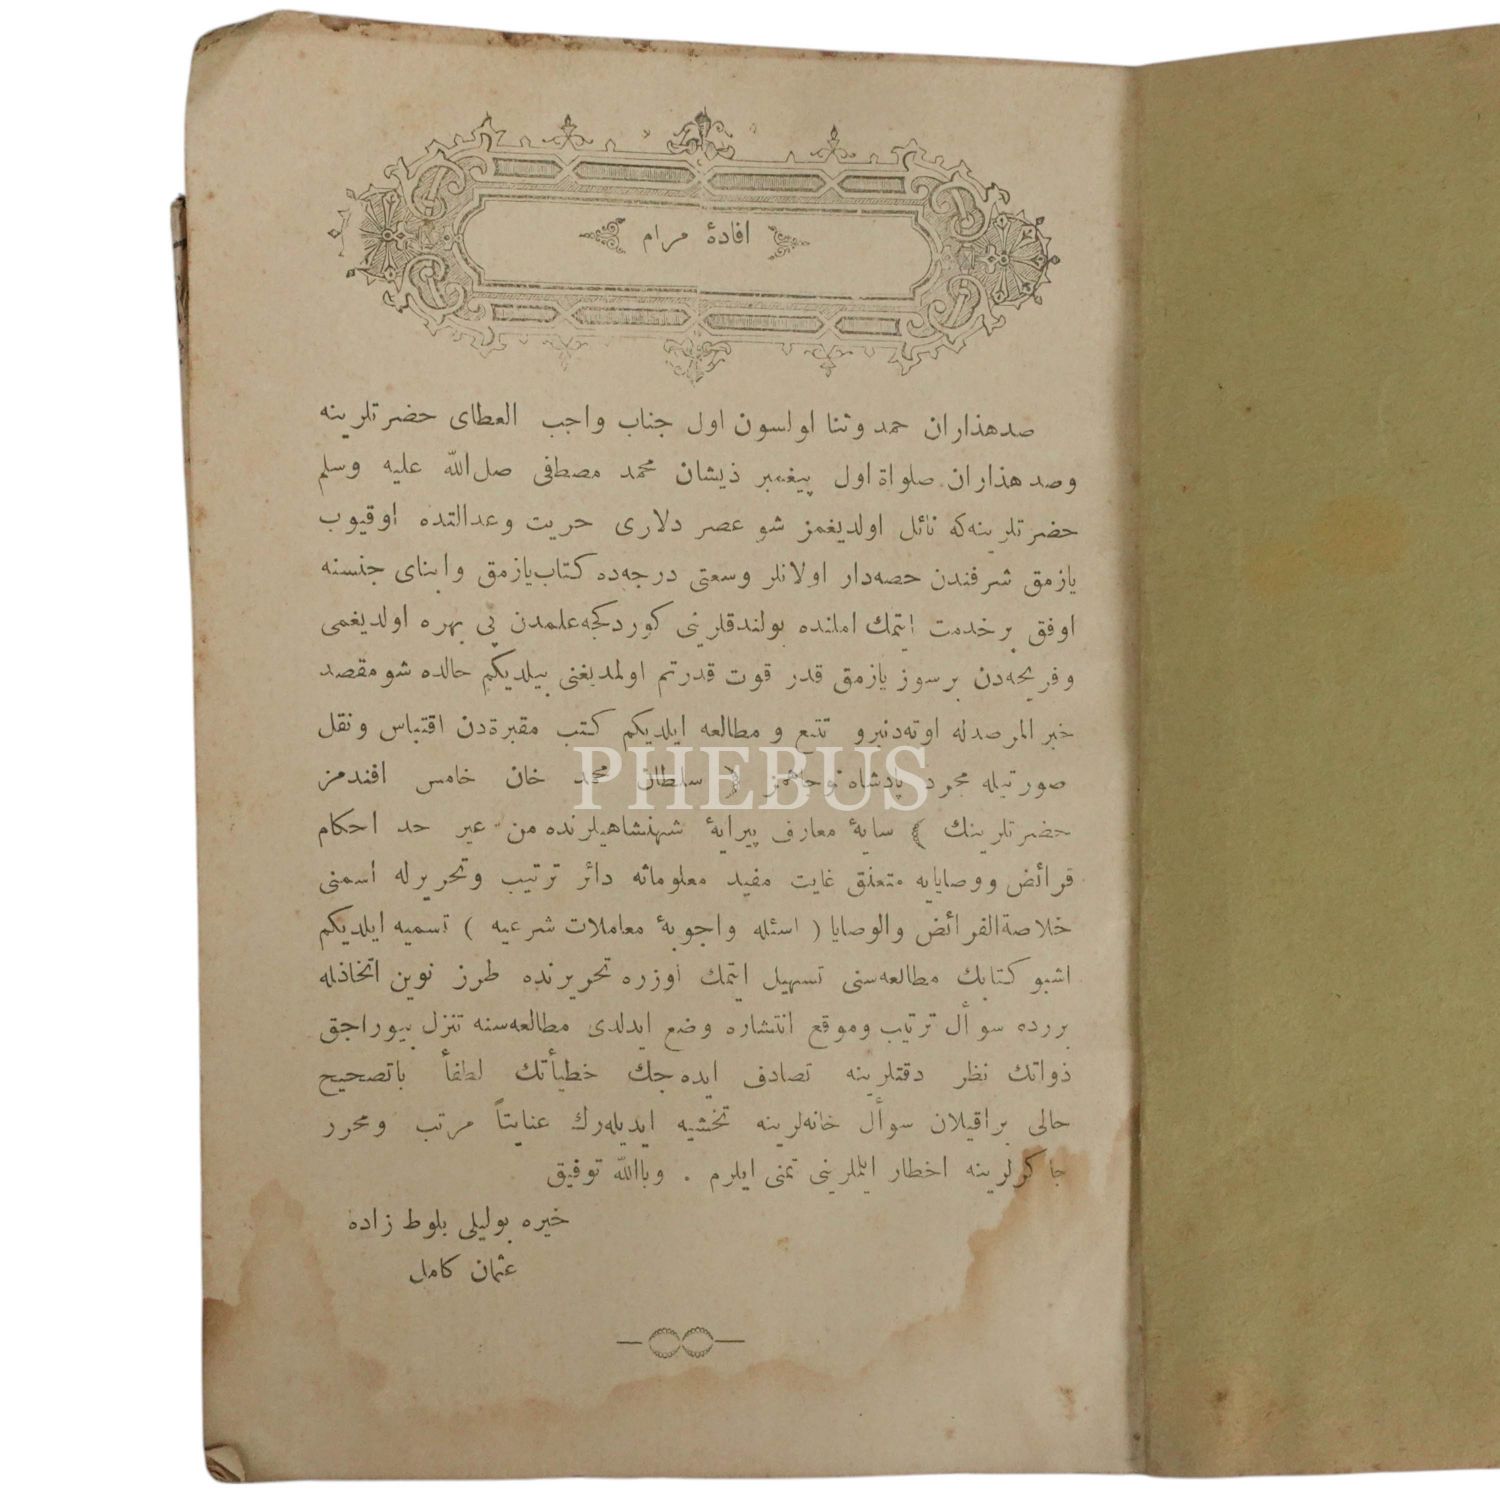 افادهٔ مرام
صدهذاران حمد وثنا اولسون اول جناب واجب العطای حضرتلرینه
وصد هذاران صلواة اول پیغمبر ذیشان محمد مصطفی صل‌الله علیه وسلم
حضرتلرینه‌که نائل اولدیغمز شو عصر دلارای حریت وعدالتده اوقیوب
یازمق شرفندن حصه‌دار اولانلر وسعتی درجه‌ده کتاب‌یازمق وابنای جنسنه
اوفق برخدمت ایتمك املنده بولندقلرینی کوردکجه‌علمدن بی بهره اولدیغمی
وقریحه‌دن برسوز یازمق قدر قوت قدرتم اولمدیغنی بیلدیکم حالده شومقصد
خیر المرصدله اوته‌دنبرو تتبع و مطالعه ایلدیکم کتب مقبرةدن اقتباس ونقل
صورتیله مجرد پادشاه نوجاهمز ﴿ سلطان محمد خان خامس افندمز
حضرتلرینك ﴾ سایهٔ معارف پیرایهٔ شهنشاهیلرنده من غیر حد احکام
فرائض ووصایایه متعلق غایت مفید معلوماته دائر ترتیب وتحریرله اسمنی
خلاصةالفرائض والوصایا ( اسئله واجوبهٔ معاملات شرعیه ) تسمیه ایلدیکم
اشبو کتابك مطالعه‌سنی تسهیل ایتمك اوزره تحریرنده طرز نوین اتخاذله
بررده سوأل ترتیب وموقع انتشاره وضع ایدلدی مطالعه‌سنه تنزل بیوراجق
ذواتك نظر دقتلرینه تصادف ایده‌جك خطیأتك لطفأ باتصحیح
حالی براقیلان سوأل خانه‌لرینه تحشیه ایدیله‌رك عنایتاً مرتب ومحرر
جاکرلرینه اخطار ایلملرینی تمنی ایلرم . وباالله توفیق
خیره بولیلی بلوط زاده
عثمان کامل
PHEBUS